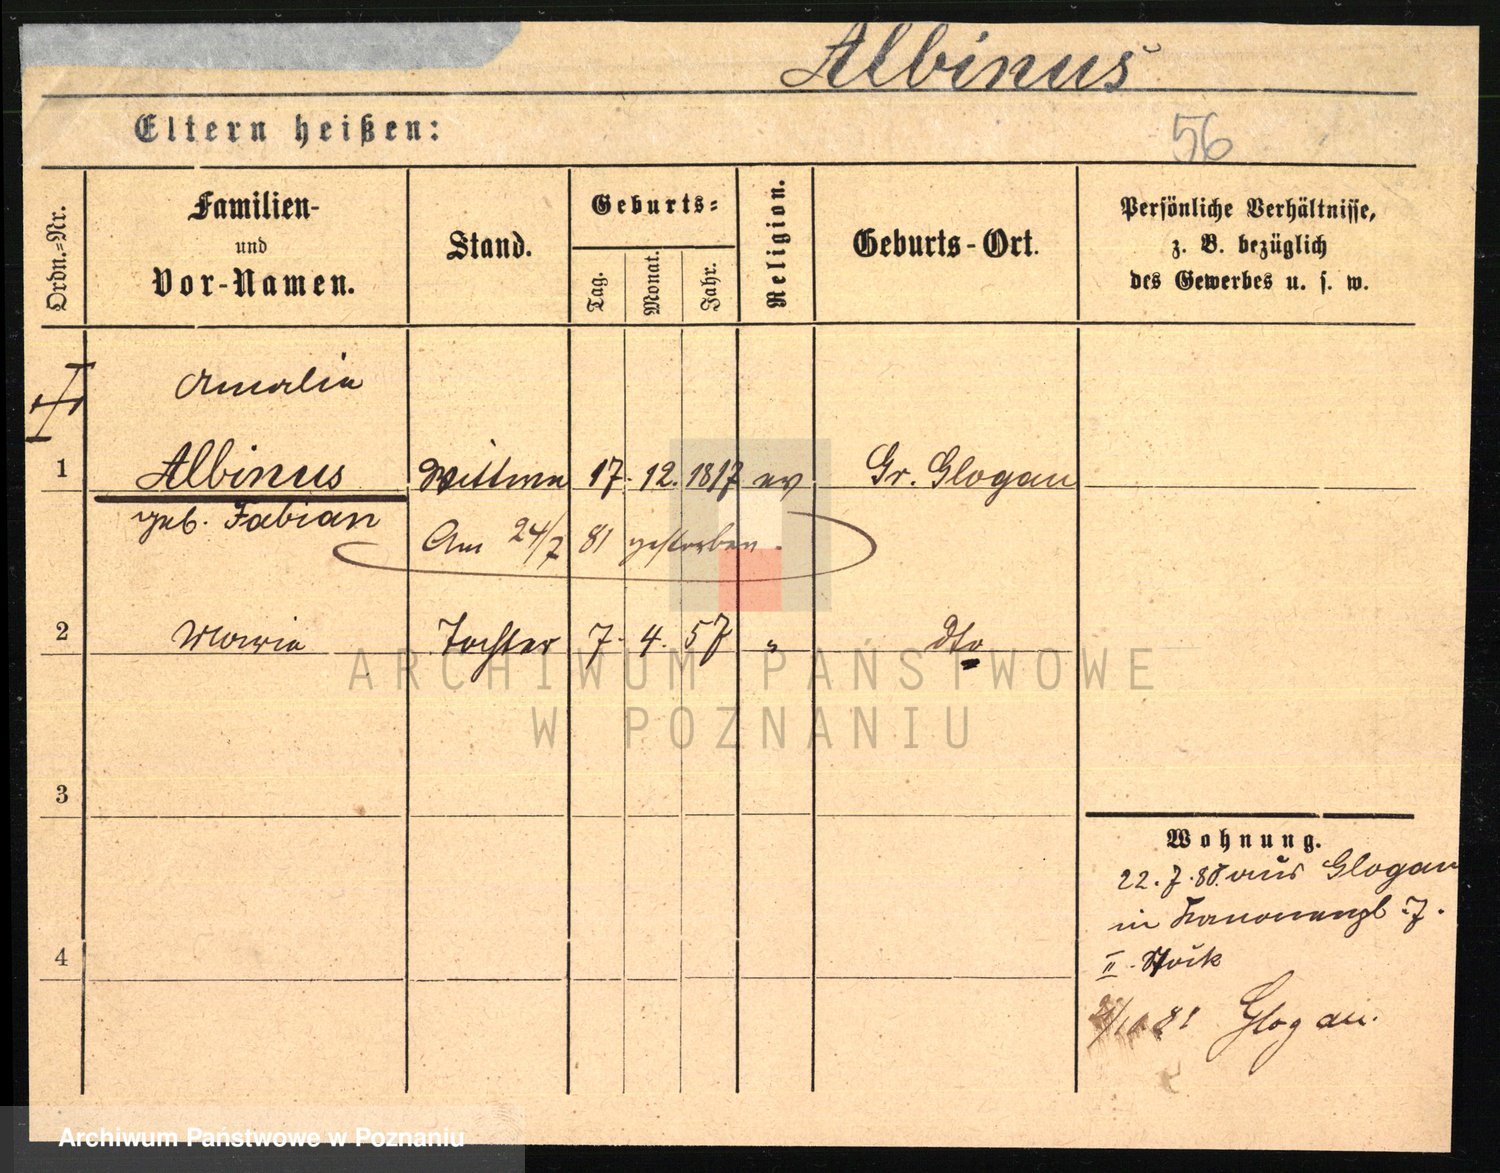 Albinus
Eltern heißen:
56
Ordn.-Nr.
Familien-
und
Vor-Namen.
Stand.
Geburts-
Tag.
Monat.
Jahr.
Religion.
Geburts-Ort.
Persönliche Verhältnisse,
z. B. bezüglich
des Gewerbes u. s. w.
Amalia
1 Albinus Wittwe 17. 12. 1817 ev Gr. Glogau
geb. Fabian
Am 24/7 81 gestorben.
2 Maria Tochter 7. 4. 57 " dto
ARCHIWUM PAŃSTWOWE
W POZNANIU
3
Wohnung.
22. 7. 80. aus Glogau
in Kanonenpl 7.
4
II. Stock
81 Glogau.
Archiwum Państwowe w Poznaniu